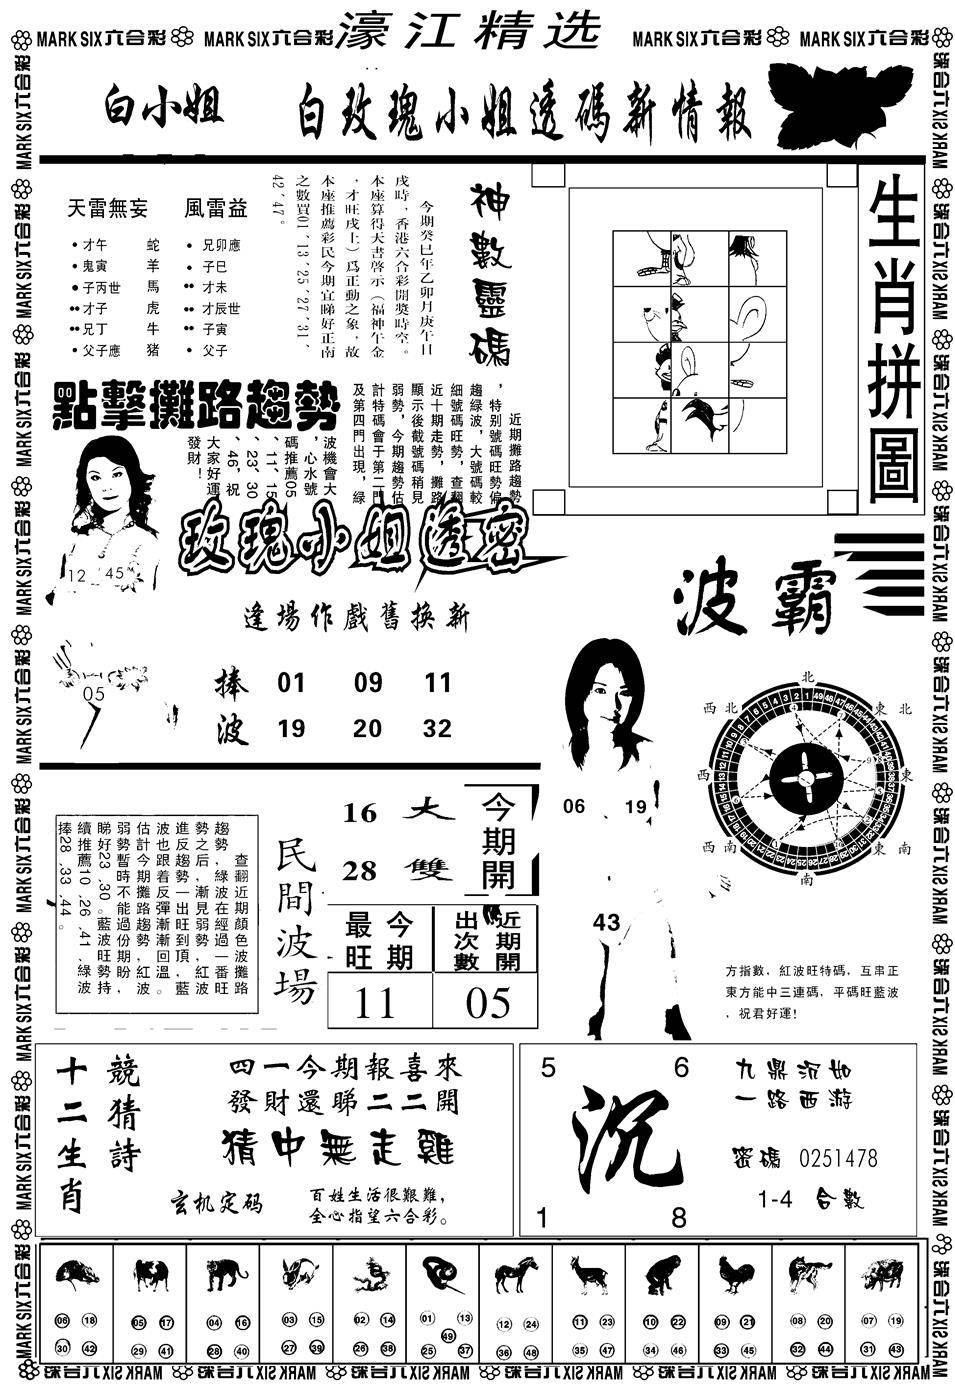 濠江精选
MARK SIX六合彩 MARK SIX六合彩 MARK SIX六合彩 MARK SIX六合彩
白小姐 白玫瑰小姐透碼新情報
天雷無妄 風雷益
才午 蛇 兄卯應
鬼寅 羊 子巳
子丙世 馬 才未
才子 虎 才辰世
兄丁 牛 子寅
父子應 猪 父子
神數靈碼
今期癸巳年乙卯月庚午日
戌時，香港六合彩開獎時空。
本座算得天書啓示（福神午金
，才旺戌土）爲正動之象，故
本座推薦彩民今期宜睇好正南
之數買01、13、25、27、31、
42、47。
生肖拼圖
點擊攤路趨勢
近期攤路趨勢
，特别號碼旺勢偏
趨綠波，大號碼較
細號碼旺勢，查翻
近十期走勢，攤路
顯示後截號碼稍見
弱勢，今期趨勢估
計特碼會于第二門
及第四門出現，綠
波機會大
，心水號
碼推薦05
、11、15
、23、30
、46，祝
大家好運
發財！
12 45
05
玫瑰小姐透密
逢場作戲舊换新
捧 01 09 11
波 19 20 32
波霸
北
西北 東北
西 東
西南 東南
南
06 19
43
方指數，紅波旺特碼，互串正
東方能中三連碼，平碼旺藍波
，祝君好運！
查翻近期顔色波攤路
趨勢，綠波在經過一番旺
勢之后，漸見弱勢，紅波
進反趨勢一出旺到頂，藍
波也跟着反彈漸漸回溫。
估計今期攤路趨勢紅波
弱勢暫時不能過份期盼，
睇好23、30。藍波旺勢持
續推薦10、26、41、綠波
捧28、33、44。
民間波場
16 大
28 雙
今期開
今期最旺
近期開出次數
11 05
十二生肖
競猜詩
四一今期報喜來
發財還睇二二開
猜中無走雞
玄机定码
百姓生活很艱難，
全心指望六合彩。
5 6
沉
1 8
九鼎沉如
一路西游
密碼 0251478
1-4 合數
06 18 30 42
05 17 29 41
04 16 28 40
03 15 27 39
02 14 26 38
01 13 49 25 37
12 24 36 48
11 23 35 47
10 22 34 46
09 21 33 45
08 20 32 44
07 19 31 43